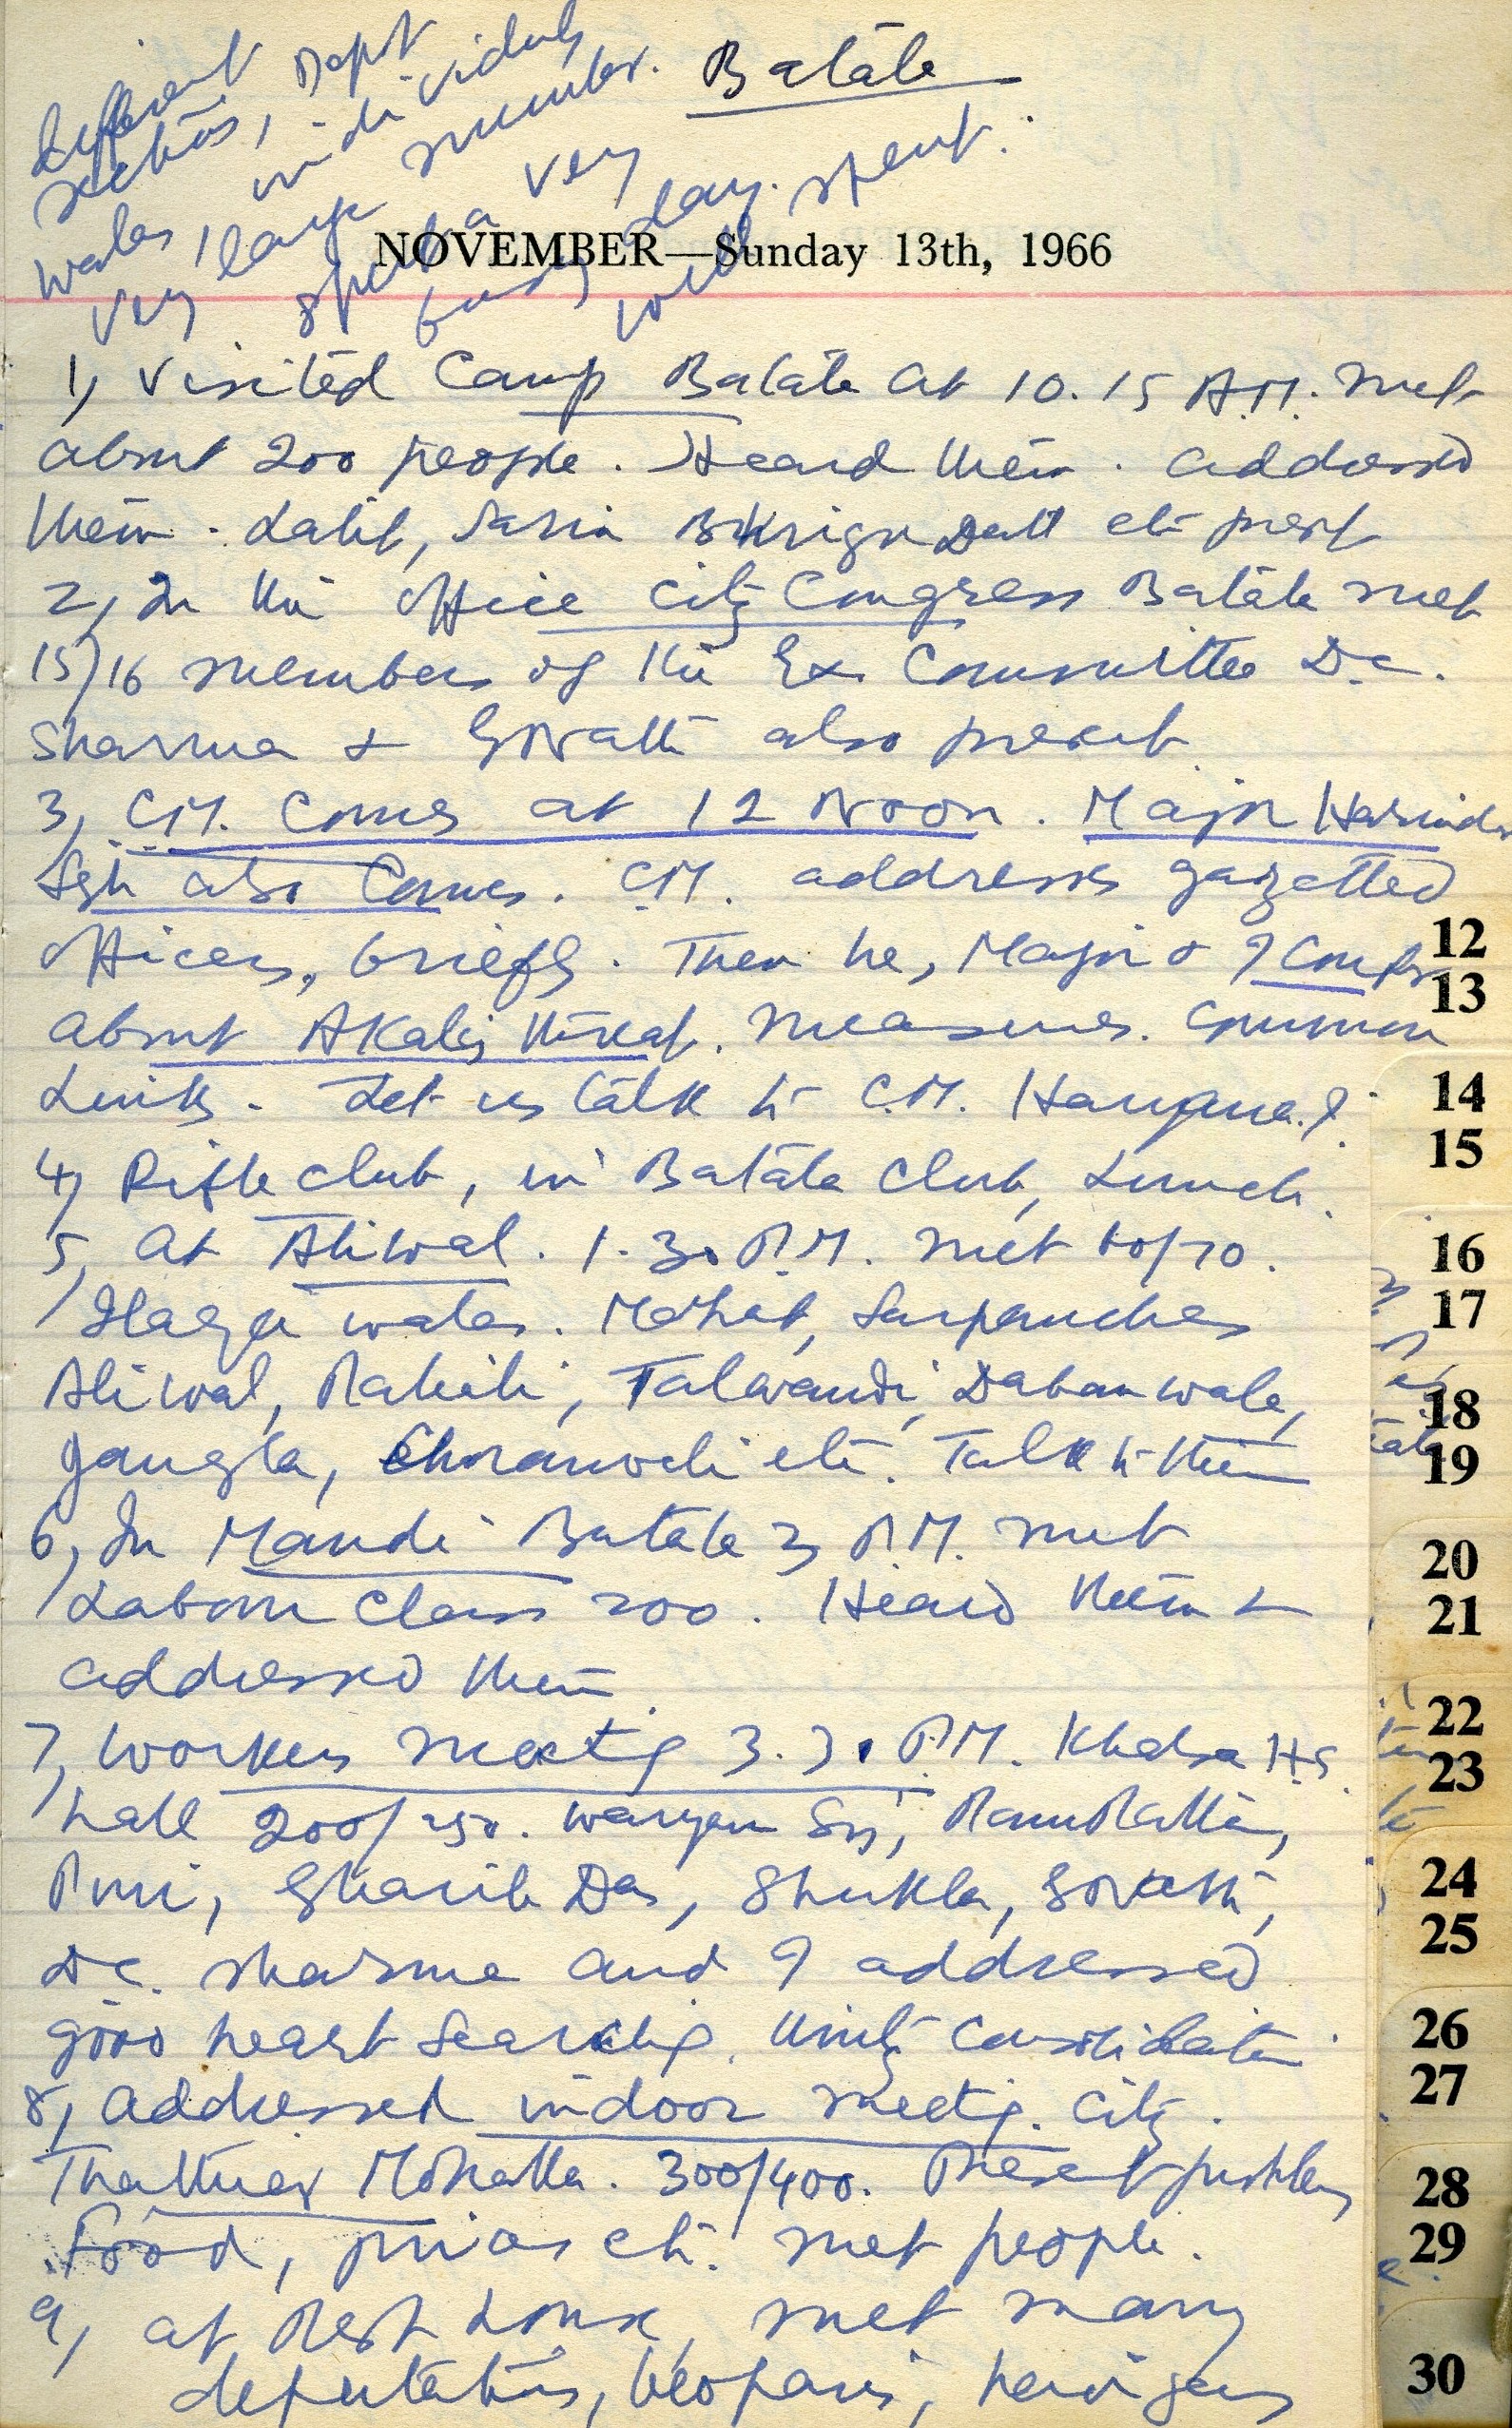 Batala
different Dept
sections, individuals
walas, very large number.
spent a very
busy day.
well spent.
NOVEMBER—Sunday 13th, 1966
1, Visited Camp Batala at 10.15 A.M. Met
about 200 people. Heard them. addressed
them. Lalit, Brij Datt etc
2, In the office City Congress Batala met
15/16 members of the Ex. Committee D.C.
Sharma & also present
3, C.M. comes at 12 Noon. Major Harinder
Sgh also comes. C.M. addresses gazetted
officers, briefly. Then he, Major & I confer
about Akalis threat. Measures. Common
Links. Let us talk to C.M. Haryana.
4, Rifle club, in Batala Club, Lunch.
5, at Aliwal. 1.30 P.M. met 60/70.
Ilaqa walas. Sarpanches
Aliwal, Talwandi, Dabanwala,
Jangla, etc. Talk to them
6, In Mandi Batala 3 P.M. met
Labour class 200. Heard them &
addressed them
7, Workers meeting 3.30 P.M. Khalsa H.S.
hall 200/250. Waryam Sgh,
Puri, Gharib Das, Shukla,
D.C. Sharma and I addressed
good heart searching. Unity consolidation
8, Addressed indoor meetig. City.
Mohalla. 300/400. Present problems
Food, prices etc. met people.
9, at Rest House, met many
deputations, beoparis, harijans
12
13
14
15
16
17
18
19
20
21
22
23
24
25
26
27
28
29
30